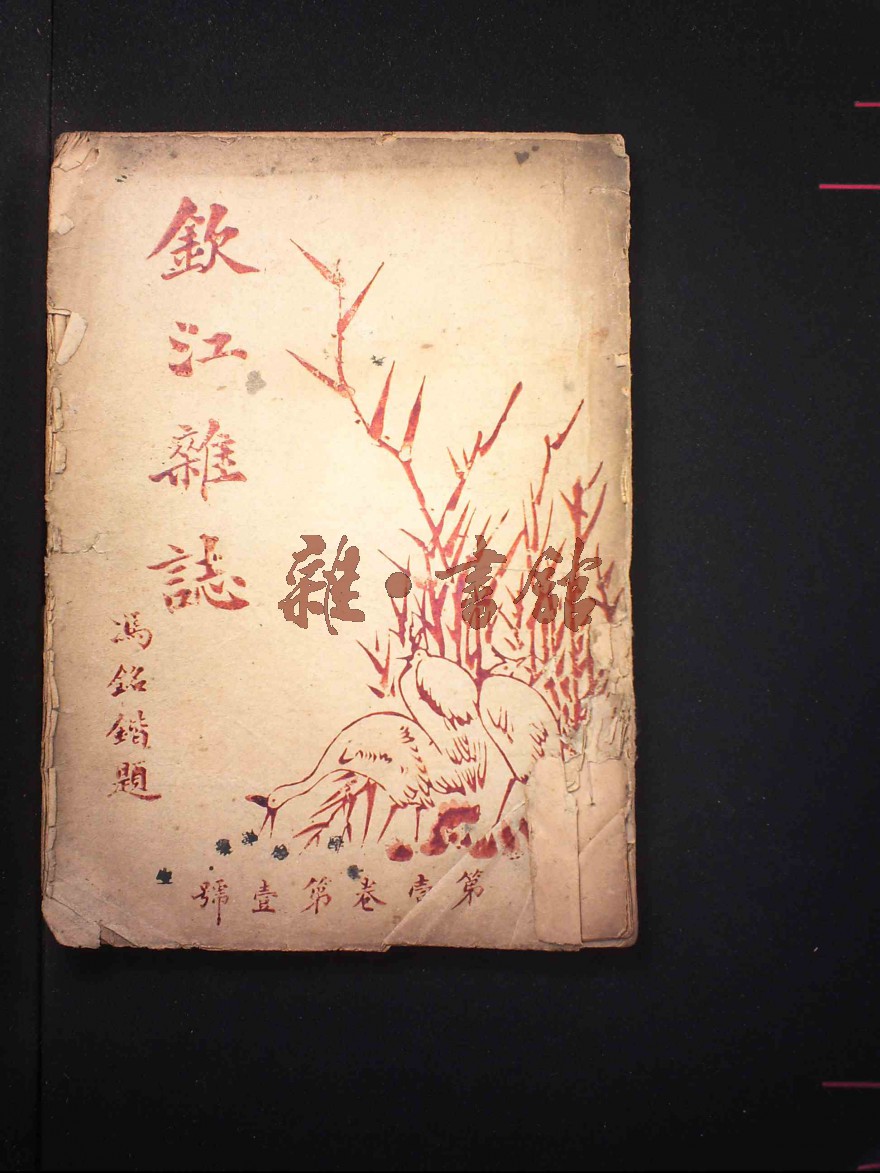 欽江雜誌
馮銘鍇題
雜·書館
第壹卷第壹號